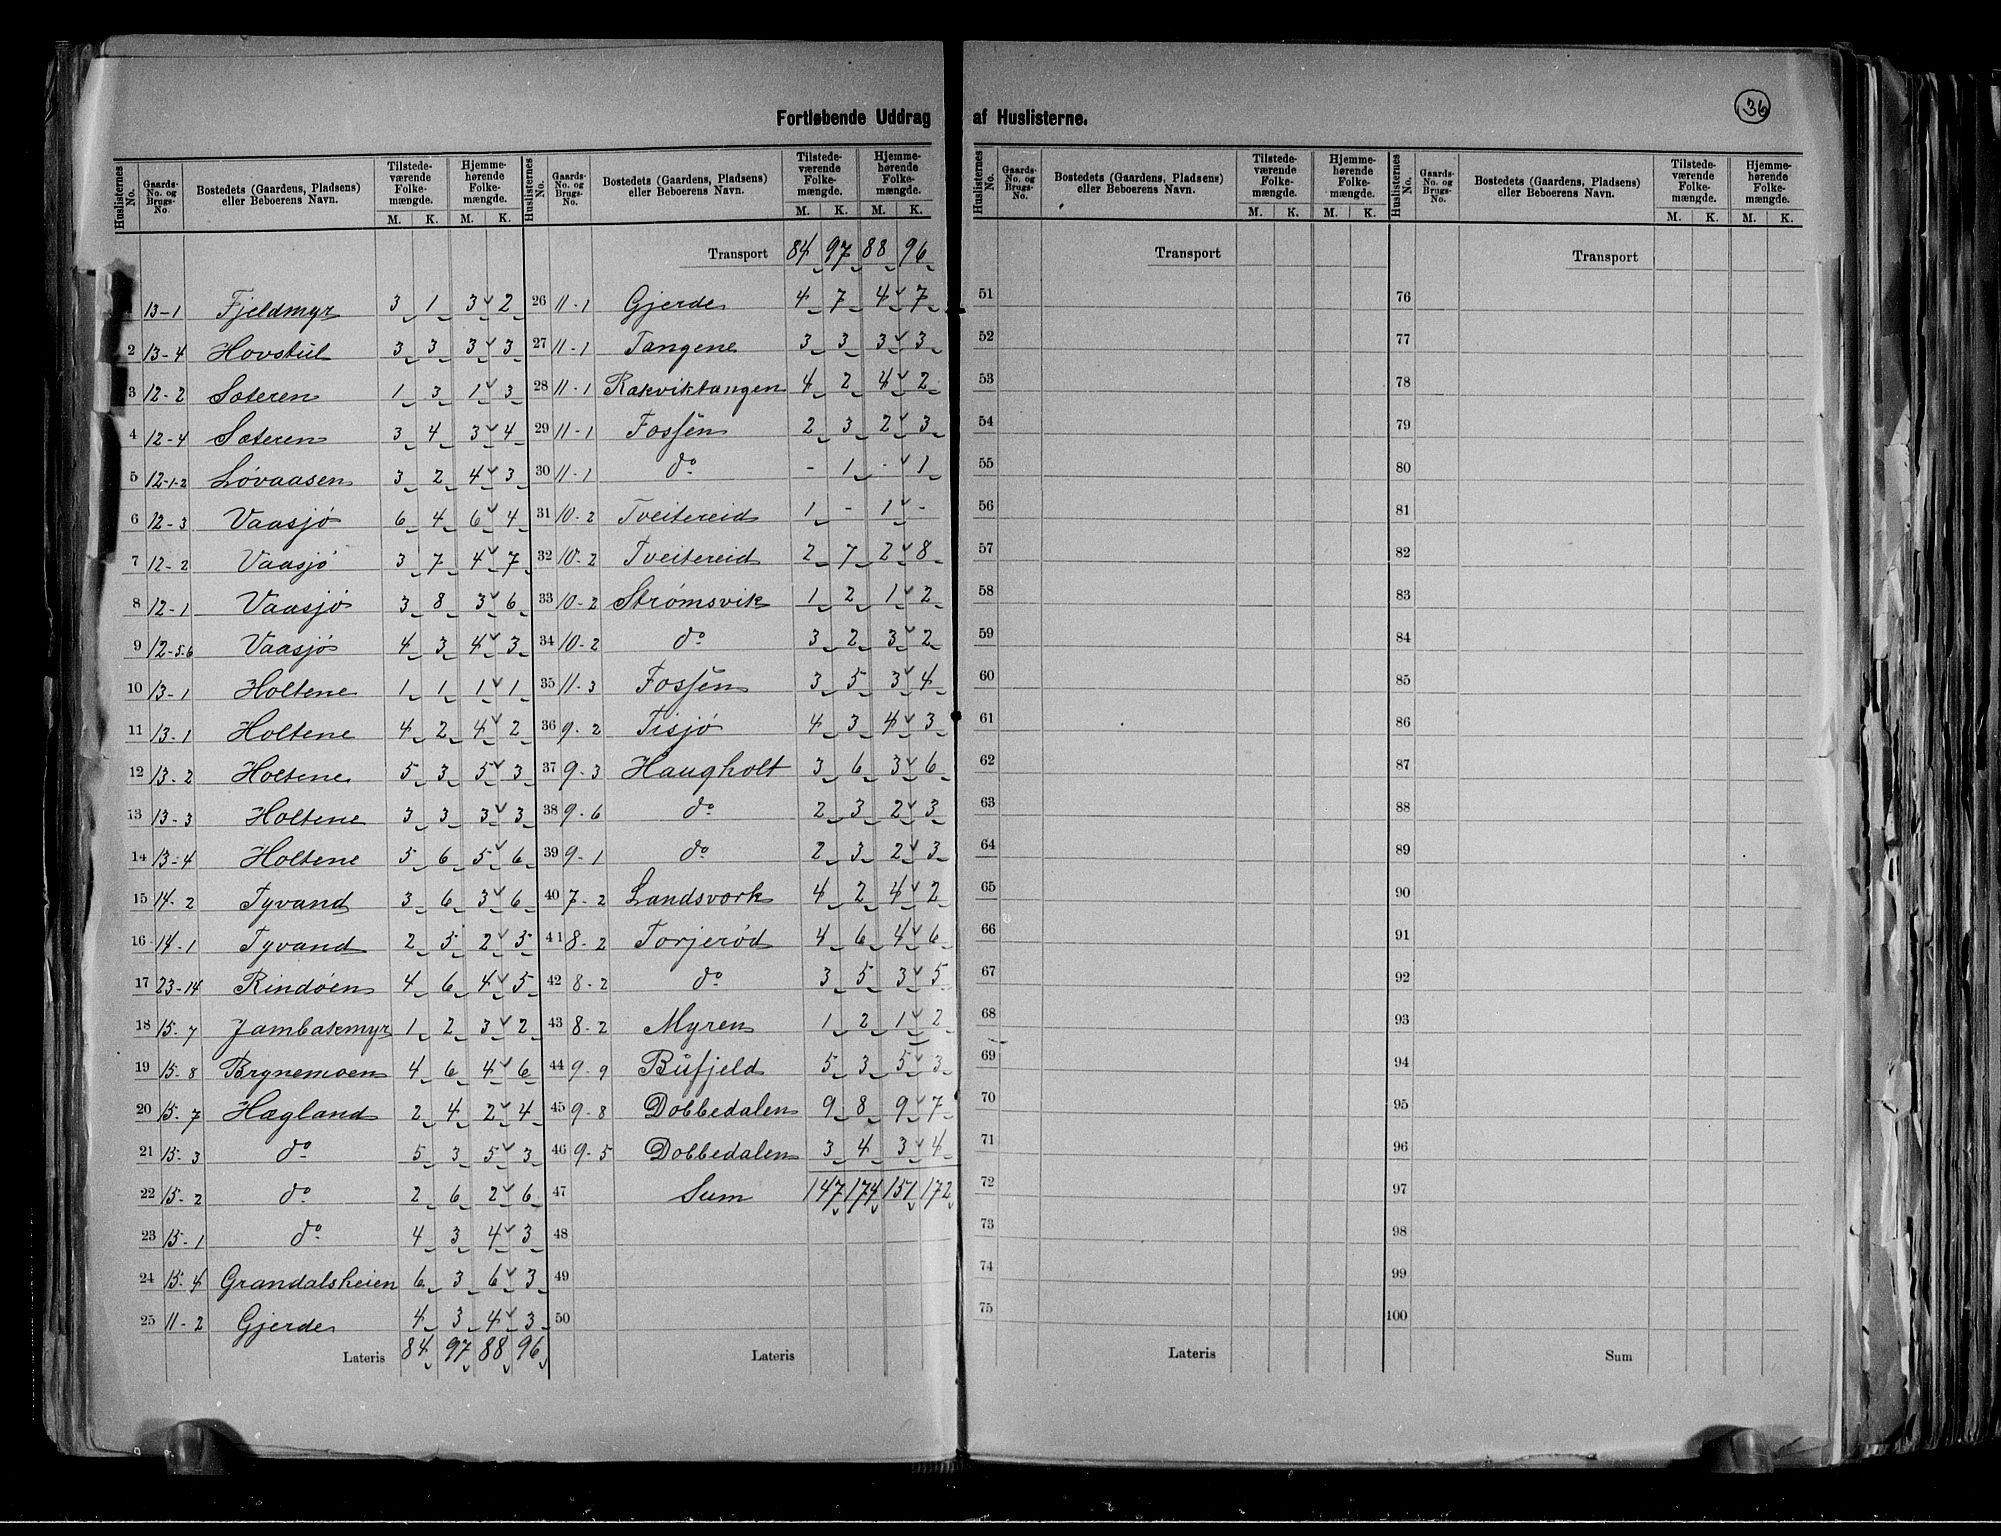 36
Fortløbende Uddrag af Huslisterne.
Huslisternes No. Gaards-No. og Brugs-No. Bostedets (Gaardens, Pladsens) eller Beboerens Navn. Tilstedeværende Folkemængde. M. K. Hjemmehørende Folkemængde. M. K.
13-1 Fjeldmyr 3 1 3 2
2 13-4 Hovstul 3 3 3 3
3 12-2 Sæteren 1 3 1 3
4 12-4 Sæteren 3 4 3 4
5 12-1-2 Løvaasen 3 2 4 3
6 12-3 Vaasjø 6 4 6 4
7 12-2 Vaasjø 3 7 4 7
8 12-1 Vaasjø 3 8 3 6
9 12-5.6 Vaasjø 4 3 4 3
10 13-1 Holtene 1 1 1 1
11 13-1 Holtene 4 2 4 2
12 13-2 Holtene 5 3 5 3
13 13-3 Holtene 3 3 3 3
14 13-4 Holtene 5 6 5 6
15 14-2 Tyvand 3 6 3 6
16 14-1 Tyvand 2 5 2 5
17 23-14 Rindøen 4 6 4 5
18 15-7 Jambakmyr 1 2 3 2
19 15-8 Brynemoen 4 6 4 6
20 15-7 Hægland 2 4 2 4
21 15-3 do 5 3 5 3
22 15-2 do 2 6 2 6
23 15-1 do 4 3 4 3
24 15-4 Grandalsheien 6 3 6 3
25 11-2 Gjerde 4 3 4 3
Lateris 84 97 88 96
Huslisternes No. Gaards-No. og Brugs-No. Bostedets (Gaardens, Pladsens) eller Beboerens Navn. Tilstedeværende Folkemængde. M. K. Hjemmehørende Folkemængde. M. K.
Transport 84 97 88 96
26 11-1 Gjerde 4 7 4 7
27 11-1 Tangene 3 3 3 3
28 11-1 Rakviktangen 4 2 4 2
29 11-1 Fossen 2 3 2 3
30 11-1 do - 1 - 1
31 10-2 Tveitereid 1 - 1 -
32 10-2 Tveitereid 2 7 2 8
33 10-2 Strømsvik 1 2 1 2
34 10-2 do 3 2 3 2
35 11-3 Fossen 3 5 3 4
36 9-2 Tisjø 4 3 4 3
37 9-3 Haugholt 3 6 3 6
38 9-6 do 2 3 2 3
39 9-1 do 2 3 2 3
40 7-2 Landsværk 4 2 4 2
41 8-2 Torjerød 4 6 4 6
42 8-2 do 3 5 3 5
43 8-2 Myren 1 2 1 2
44 9-9 Bufjeld 5 3 5 3
45 9-8 Dobbedalen 9 8 9 7
46 9-5 Dobbedalen 3 4 3 4
47 Sum 147 174 151 172
48
49
50
Lateris
Huslisternes No. Gaards-No. og Brugs-No. Bostedets (Gaardens, Pladsens) eller Beboerens Navn. Tilstedeværende Folkemængde. M. K. Hjemmehørende Folkemængde. M. K.
Transport
51
52
53
54
55
56
57
58
59
60
61
62
63
64
65
66
67
68
69
70
71
72
73
74
75
Lateris
Huslisternes No. Gaards-No. og Brugs-No. Bostedets (Gaardens, Pladsens) eller Beboerens Navn. Tilstedeværende Folkemængde. M. K. Hjemmehørende Folkemængde. M. K.
Transport
76
77
78
79
80
81
82
83
84
85
86
87
88
89
90
91
92
93
94
95
96
97
98
99
100
Sum